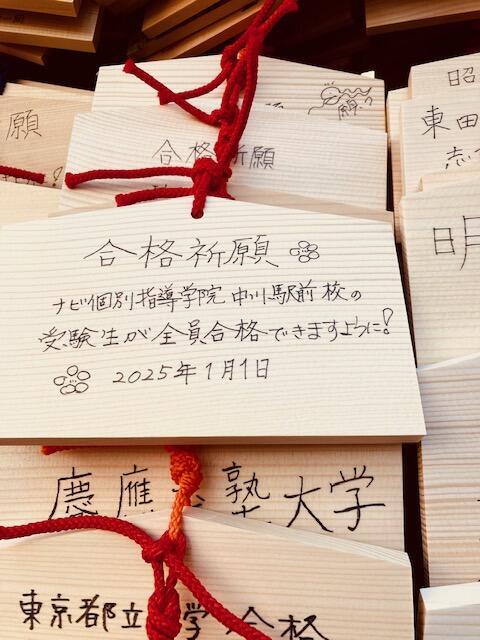 願
合格祈願
昭
東田
志
明
合格祈願
ナビ個別指導学院 中川駅前校の
受験生が全員合格できますように!
2025年1月1日
慶應 塾大学
東京都立 学 合格